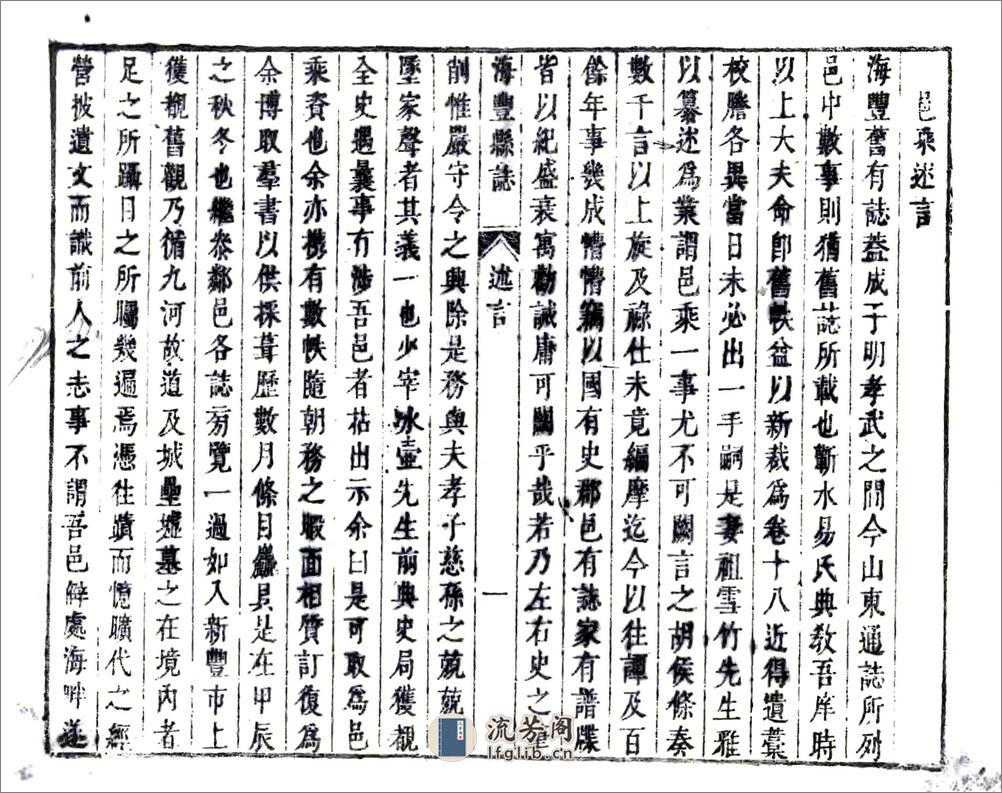 邑乘述言
海豐舊有誌葢成于明孝武之間今山東通誌所列
邑中數事則猶舊誌所載也蘄水易氏典敎吾庠時
以上大夫命卽舊帙益以新裁爲卷十八近得遺藁
校謄各異當日未必出一手嗣是妻祖雪竹先生雅
以纂述爲業謂邑乘一事尤不可闕言之胡侯條奏
數千言以上旋及祿仕未竟編摩迄今以往譚及百
餘年事幾成懵懵竊以國有史郡邑有誌家有譜牒
皆以紀盛衰寓勸誡庸可闕乎哉若乃左右史之
海豐縣誌
述言
一
削惟嚴守令之興除是務與夫孝子慈孫之兢兢
墜家聲者其義一也少宰冰壷先生前典史局獲覩
全史遇曩事有涉吾邑者枯出示余曰是可取爲邑
乘資也余亦携有數帙隨朝務之暇面相質訂復爲
余博取羣書以供採葺歷數月條目麤具是在甲辰
之秋冬也繼叅鄰邑各誌旁覽一過如入新豐市上
獲覩舊觀乃循九河故道及城壘墟墓之在境內者
足之所躡目之所矚幾遍焉憑往蹟而憶曠代之經
營披遺文而識前人之志事不謂吾邑僻處海畔遂
流芳阁
lfglib.cn